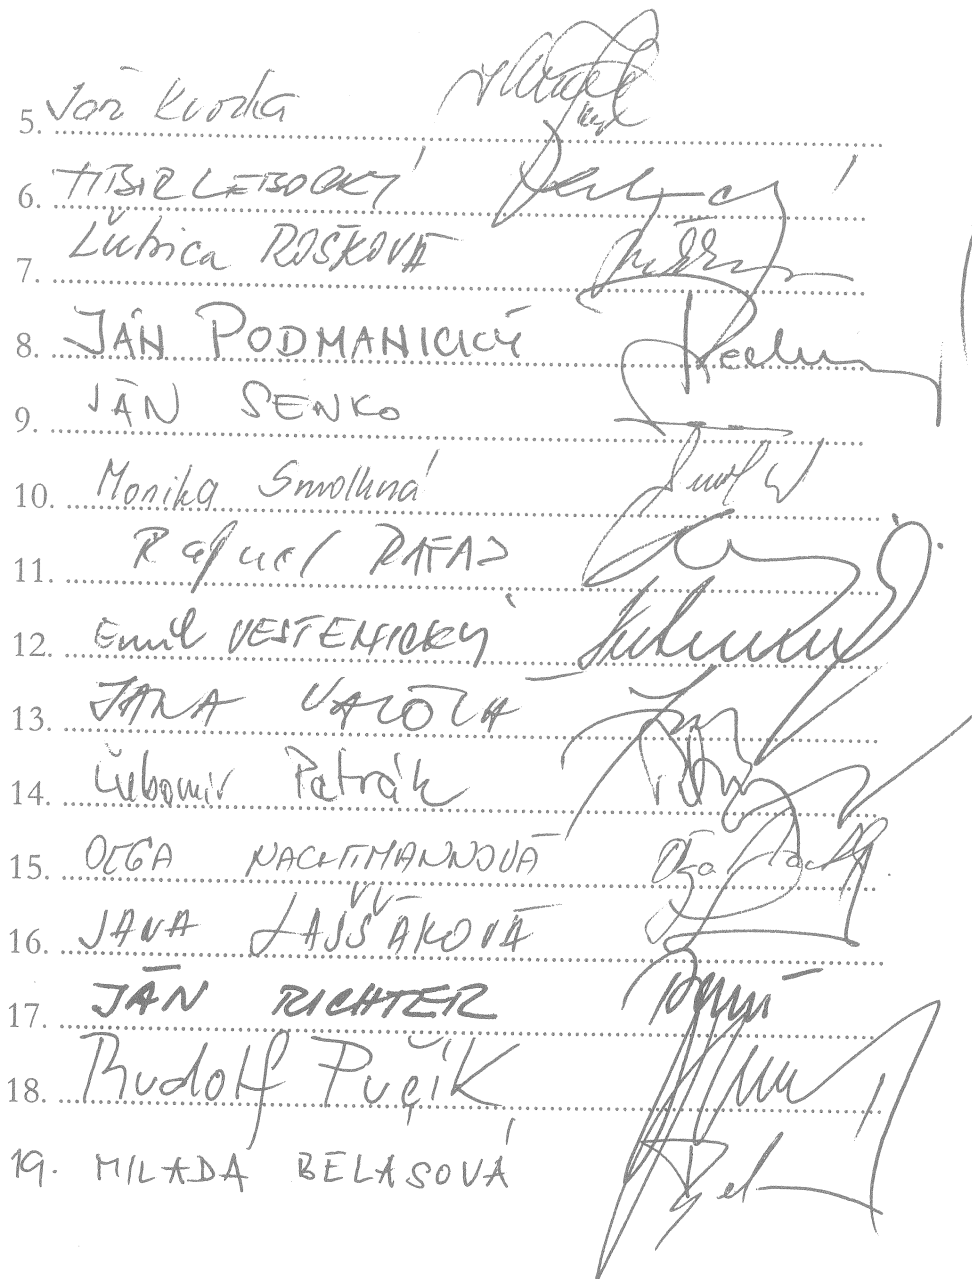 5. Ján Kvorka
6. TIBOR LEBOCKÝ
7. Ľubica ROŠKOVÁ
8. JÁN PODMANICKÝ
9. JÁN SENKO
10. Monika Smolková
11. Rafael RAFAJ
12. Emil VESTENICKÝ
13. JANA VAĽOVÁ
14. Ľubomír Petrák
15. OĽGA NACHTMANNOVÁ
16. JANA LAŠŠÁKOVÁ
17. JÁN RICHTER
18. Rudolf Pučík
19. MILADA BELASOVÁ